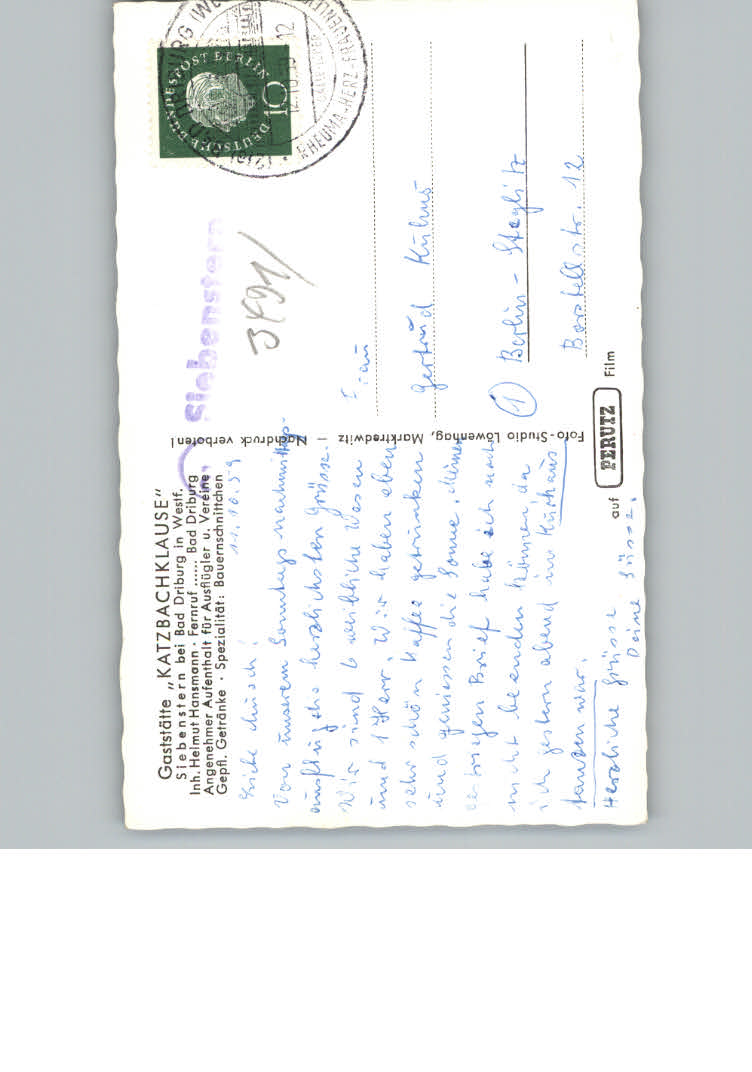 Gaststätte „KATZBACHKLAUSE"
Siebenstern bei Bad Driburg in Westf.
Inh. Helmut Hansmann · Fernruf ...... Bad Driburg
Angenehmer Aufenthalt für Ausflügler u. Vereine
Gepfl. Getränke · Spezialität: Bauernschnittchen
11.10.59
Von unserem Sonntags nachmittags-
ausflug die herzlichsten Grüsse.
Wir sind 6 weibliche Wesen
und 1 Herr. Wir haben eben
sehr schön Kaffee getrunken
und geniessen die Sonne. Meinen
Brief habe ich noch
nicht beenden können da
ich gestern abend im Kurhaus
tanzen war.
Herzliche Grüsse
Deine Süsse.
Foto-Studio Löwenhag, Marktredwitz — Nachdruck verboten!
auf PERUTZ Film
Siebenstern
3491
DEUTSCHE BUNDESPOST BERLIN
10
BAD DRIBURG (WE
(21a)
12.10.59 12
RHEUMA-HERZ-FRAUENLEI
Frau
Gertrud Kühns
(1) Berlin - Steglitz
Borstellstr. 12